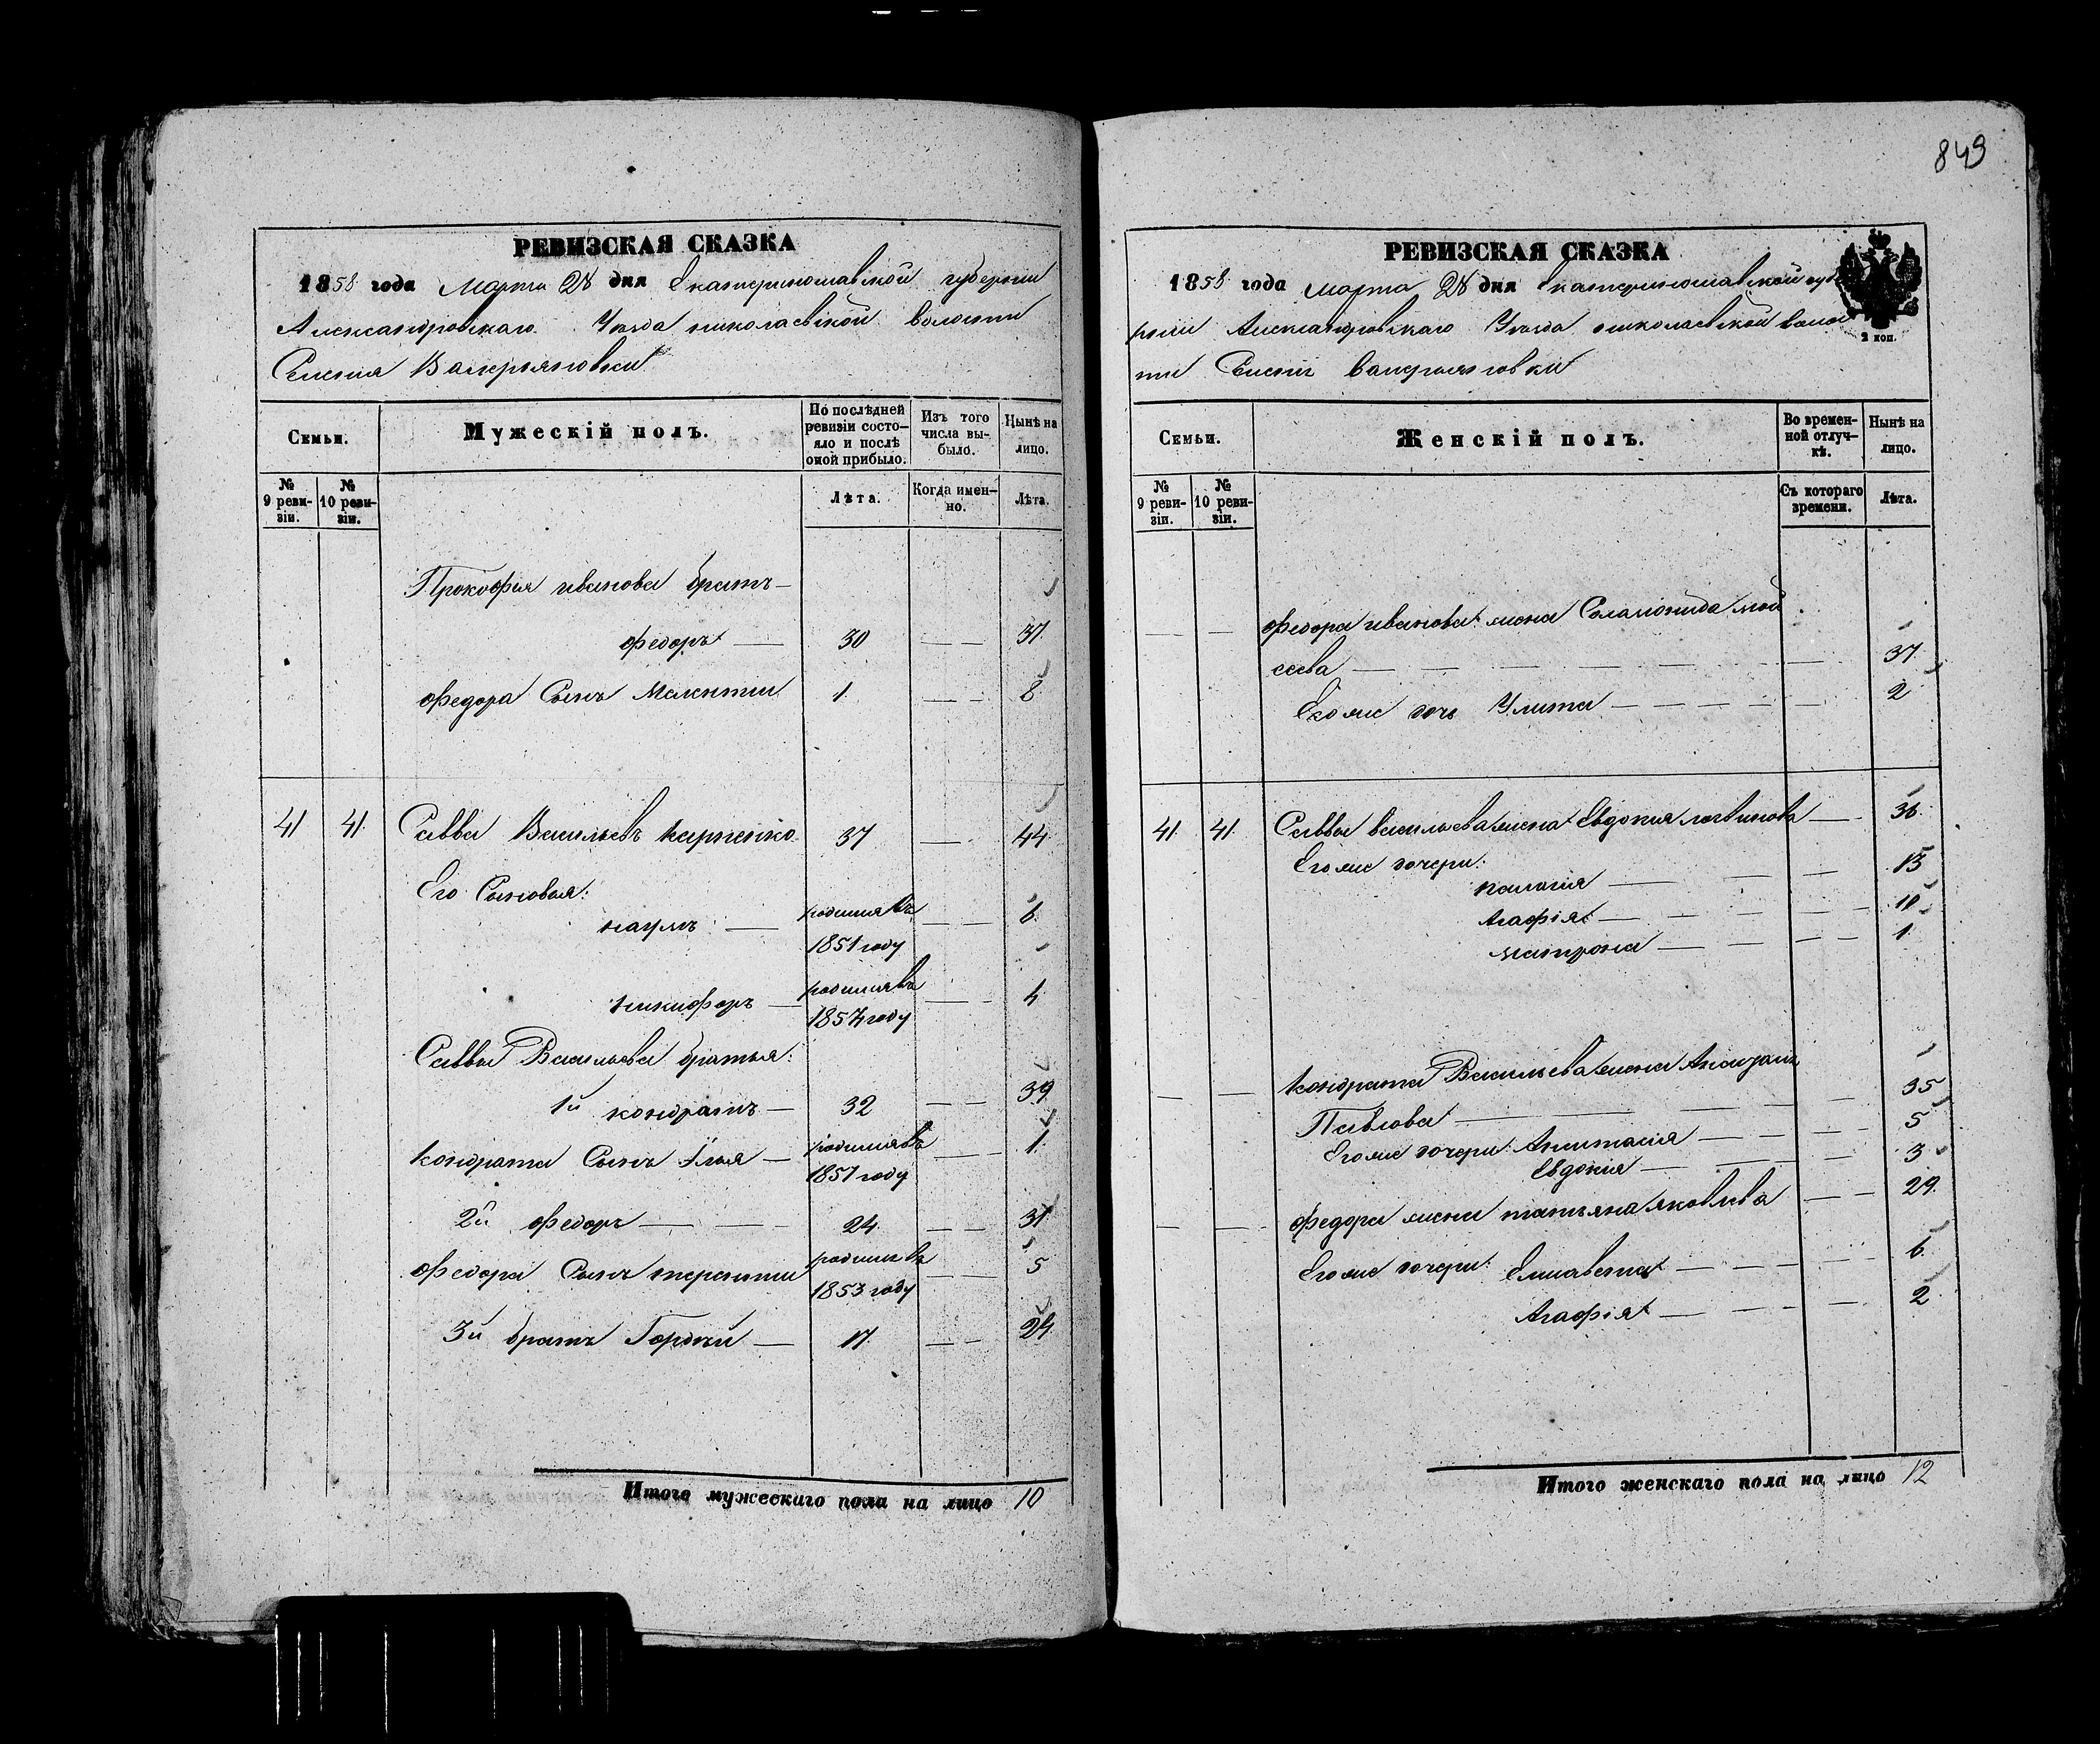 849
РЕВИЗСКАЯ СКАЗКА
1858 года Марта 28 дня Екатеринославской губернии
Александровскаго Уезда николаевской волости
Селения Валерьяновки
Семьи.
Мужескій полъ.
По послѣдней ревизіи состояло и послѣ оной прибыло.
Изъ того числа выбыло.
Нынѣ на лицо.
№ 9 ревизіи.
№ 10 ревизіи.
Лѣта.
Когда именно.
Лѣта.
Прокофия иванова братъ —
федоръ — 30 — — 37
федора Сынъ Мелентии 1. — — 8
41 41. Савва Васильевъ карпенко 37 — 44
Его Сыновья:
наумъ — родился въ 1851 году — — 6.
никифоръ — родился въ 1854 году — — 4
Саввы Васильева братья:
1й кондратъ — 32 — — 39
кондрата Сынъ Илья — родился въ 1857 году — — 1.
2й федоръ — — — 24 — — 31
федора Сынъ терентии родился въ 1853 году — — 5
3й братъ Гордѣй — 17 — — 24
Итого мужескаго пола на лицо 10
РЕВИЗСКАЯ СКАЗКА
1858 года марта 28 дня Екатеринославской губе
рнии Александровскаго Уезда николаевской волос
ти Селения валерьяновки
2 коп.
Семьи.
Женскій полъ.
Во временной отлучкѣ.
Нынѣ на лицо.
№ 9 ревизіи.
№ 10 ревизіи.
Съ котораго времени.
Лѣта.
— — федора иванова жена Соломонида мой
сеева — — — — — — — 37
Его же дочь Улита — — — — — 2
41. 41. Саввы васильева жена Евдокия логвинова — 36.
Его же дочери:
пелагия — — — 13
Агафія — — — — 10
матрона — — — — 1
— — кондрата Васильева жена
Павлова — — — — 35
Его же дочери: Анастасия — — — 5
Евдокия — — — 3
— — федора жена татьяна яковлева — — 29.
Его же дочери: Елисавета — — — — 6
Агафія — — — — 2
Итого женскаго пола на лицо 12